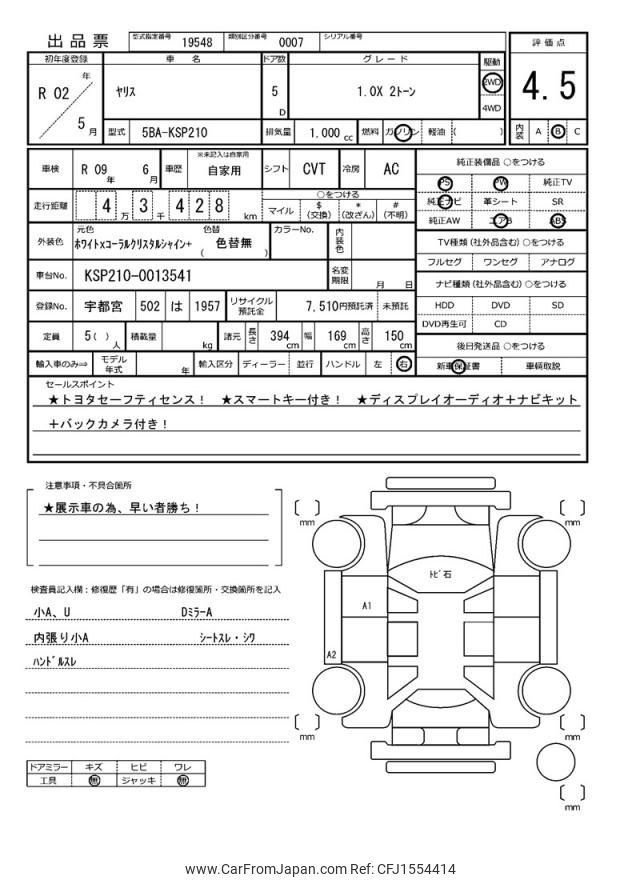 出品票 型式指定番号 19548 類別区分番号 0007 シリアル番号
評価点
4.5
内装 A B C
初年度登録 車名 ドア数 グレード 駆動
R 02 年 5 月 ヤリス 5 D 1.0X 2トーン 2WD 4WD
型式 5BA-KSP210 排気量 1,000 cc 燃料 ガソリン 軽油 ( )
車検 R 09 年 6 月 車歴 ※未記入は自家用 自家用 シフト CVT 冷房 AC
走行距離 4 万 3 千 4 2 8 km ○をつける マイル $ (交換) * (改ざん) # (不明)
外装色 元色 ホワイトxコーラルクリスタルシャイン+ 色替 ( 色替無 ) カラーNo. 内装色
車台No. KSP210-0013541 名変期限 月 日
登録No. 宇都宮 502 は 1957 リサイクル預託金 7,510円預託済 未預託
定員 5( ) 人 積載量 kg 諸元 長さ 394 cm 幅 169 cm 高さ 150 cm
輸入車のみ⇒ モデル年式 年 輸入区分 ディーラー 並行 ハンドル 左 右
純正装備品 ○をつける
PS PW 純正TV
純正ナビ 革シート SR
純正AW エアB ABS
TV種類(社外品含む)○をつける
フルセグ ワンセグ アナログ
ナビ種類(社外品含む)○をつける
HDD DVD SD
DVD再生可 CD
後日発送品 ○をつける
新車保証書 車輌取説
セールスポイント
★トヨタセーフティセンス! ★スマートキー付き! ★ディスプレイオーディオ+ナビキット
+バックカメラ付き!
注意事項・不具合箇所
★展示車の為、早い者勝ち!
検査員記入欄:修復歴「有」の場合は修復箇所・交換箇所を記入
小A、U DミラーA
内張り小A シートスレ・シワ
ハンドルスレ
ドアミラー キズ ヒビ ワレ
工具 無 ジャッキ 無
mm
mm
トビ石
A1
A2
mm
mm
mm
www.CarFromJapan.com Ref: CFJ1554414